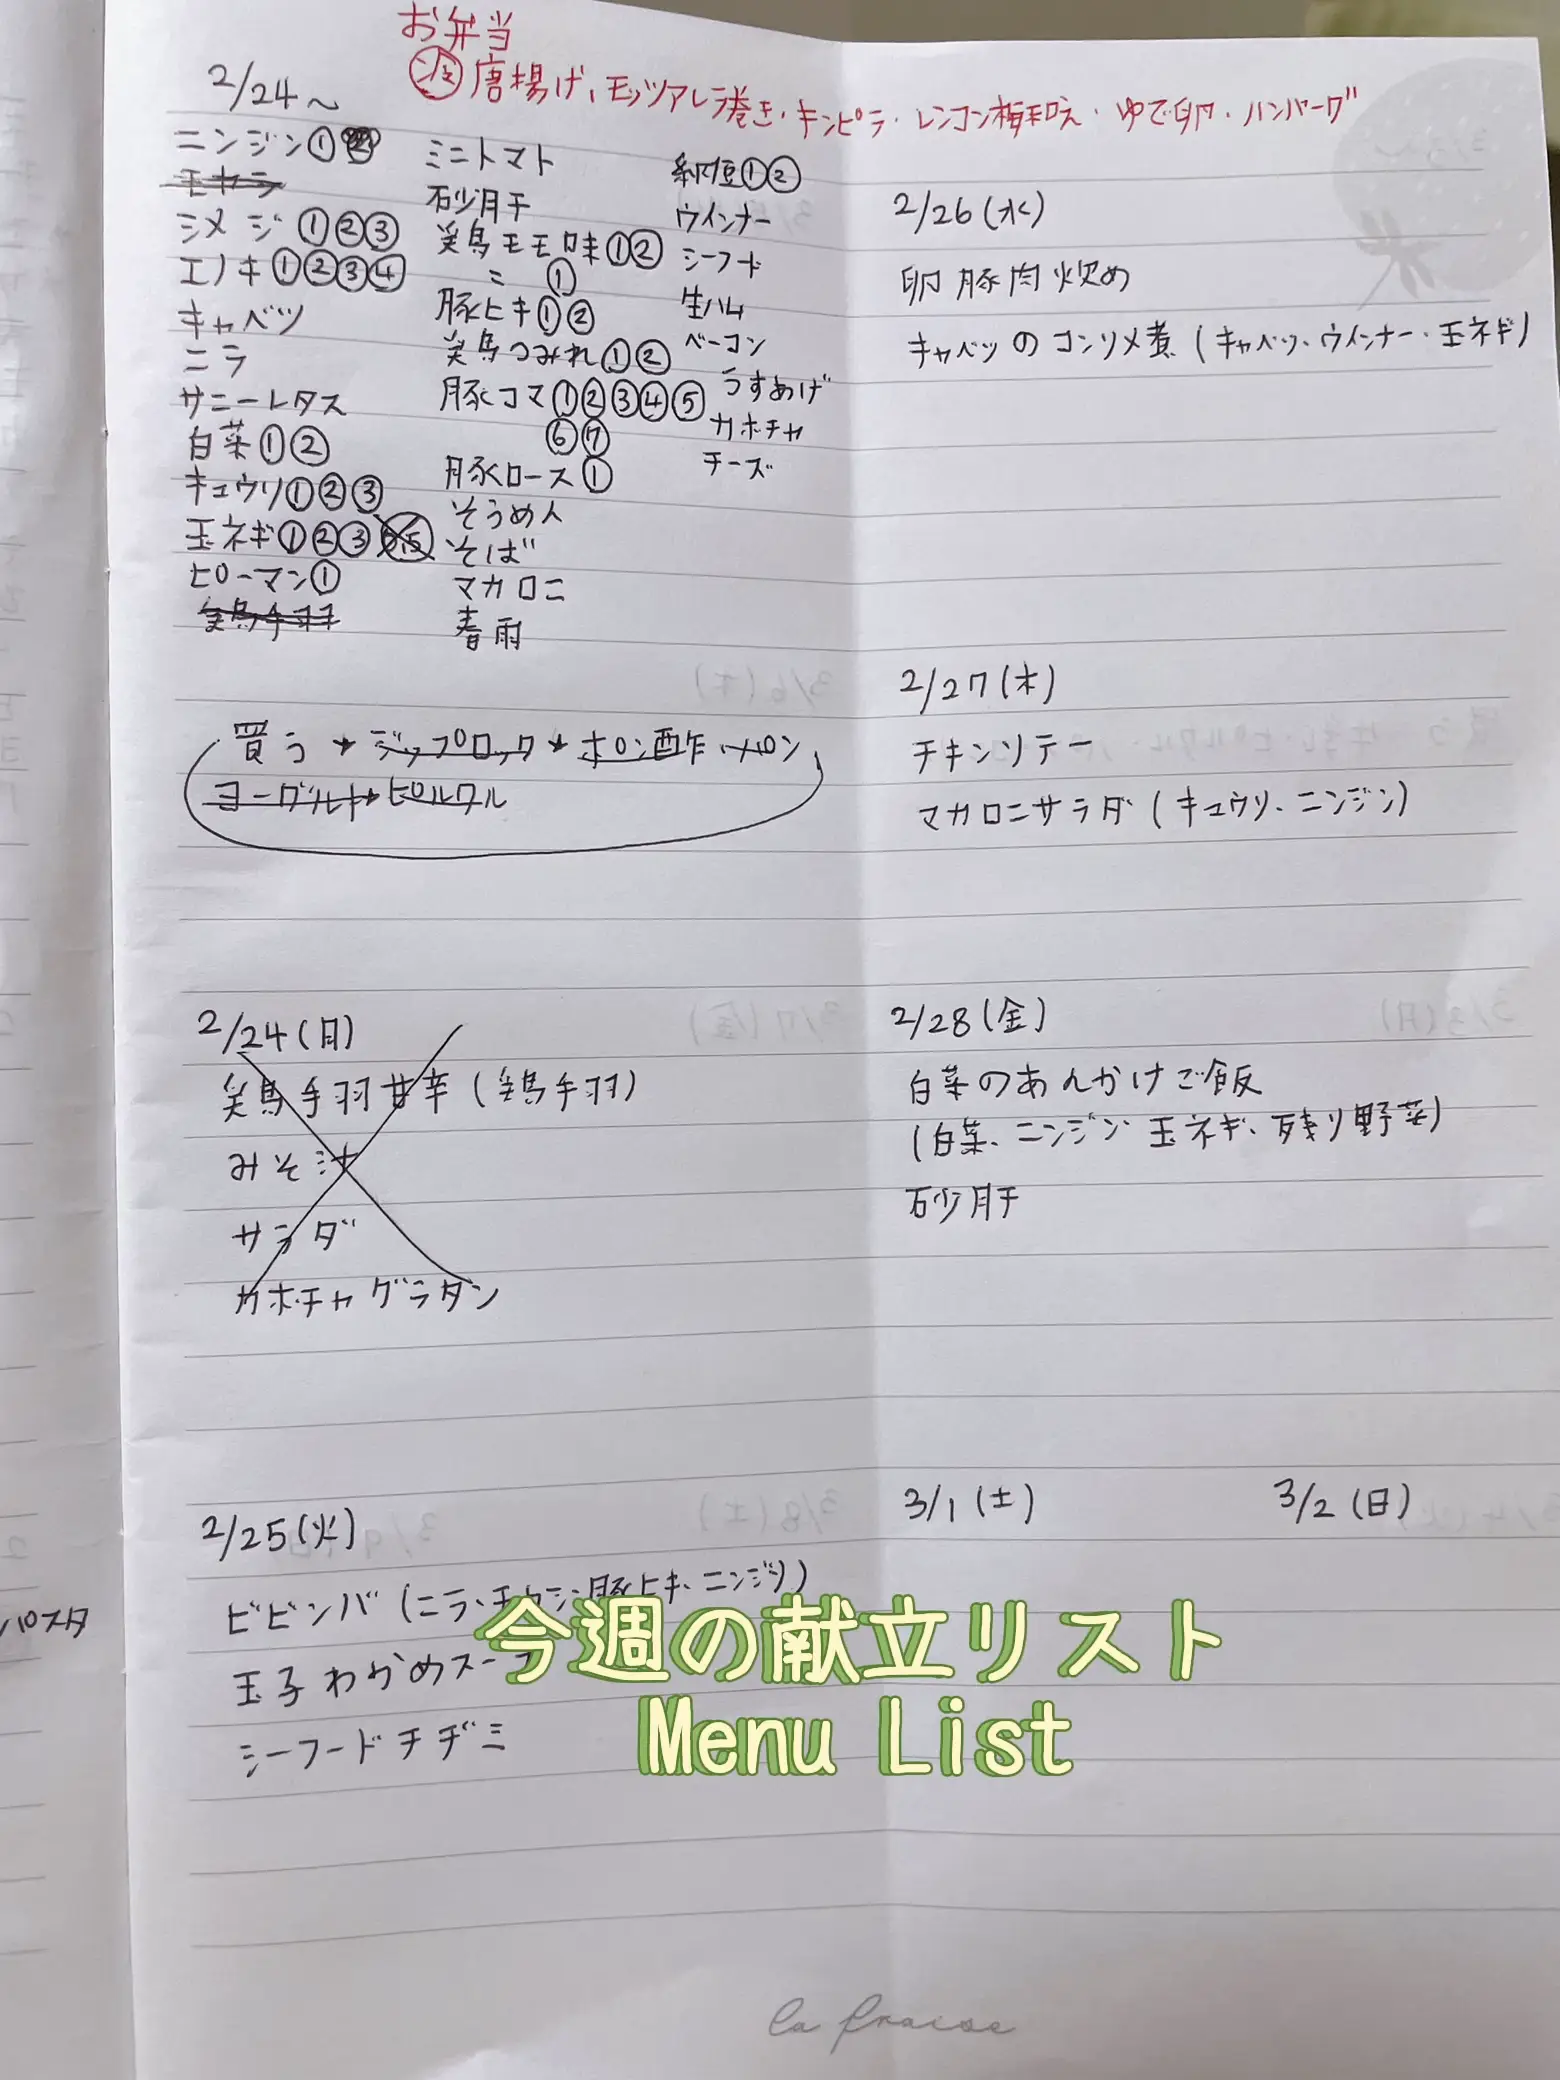 お弁当
唐揚げ、モッツアレラ巻き・キンピラ・レンコン梅和え・ゆで卵・ハンバーグ
2/24〜
ニンジン①
モヤシ
シメジ①②③
エノキ①②③④
キャベツ
ニラ
サニーレタス
白菜①②
キュウリ①②③
玉ネギ①②③
ピーマン①
鶏手羽
ミニトマト
砂肝
鶏モモ①②
ミ①
豚ヒキ①②
鶏つみれ①②
豚コマ①②③④⑤
⑥⑦
豚ロース①
そうめん
そば
マカロニ
春雨
納豆①②
ウインナー
シーフード
生ハム
ベーコン
うすあげ
カボチャ
チーズ
買う ★ジップロック★ポン酢・パン
ヨーグルト ピルクル
2/24(月)
鶏手羽甘辛(鶏手羽)
みそ汁
サラダ
カボチャグラタン
2/25(火)
ビビンバ(ニラ、モヤシ、豚ヒキ、ニンジン)
玉子わかめスープ
シーフードチヂミ
2/26(水)
卵豚肉炒め
キャベツのコンソメ煮(キャベツ、ウインナー・玉ネギ)
2/27(木)
チキンソテー
マカロニサラダ(キュウリ、ニンジン)
2/28(金)
白菜のあんかけご飯
(白菜、ニンジン、玉ネギ、残り野菜)
砂肝
3/1(土)
3/2(日)
パスタ
今週の献立リスト
Menu List
la fraise